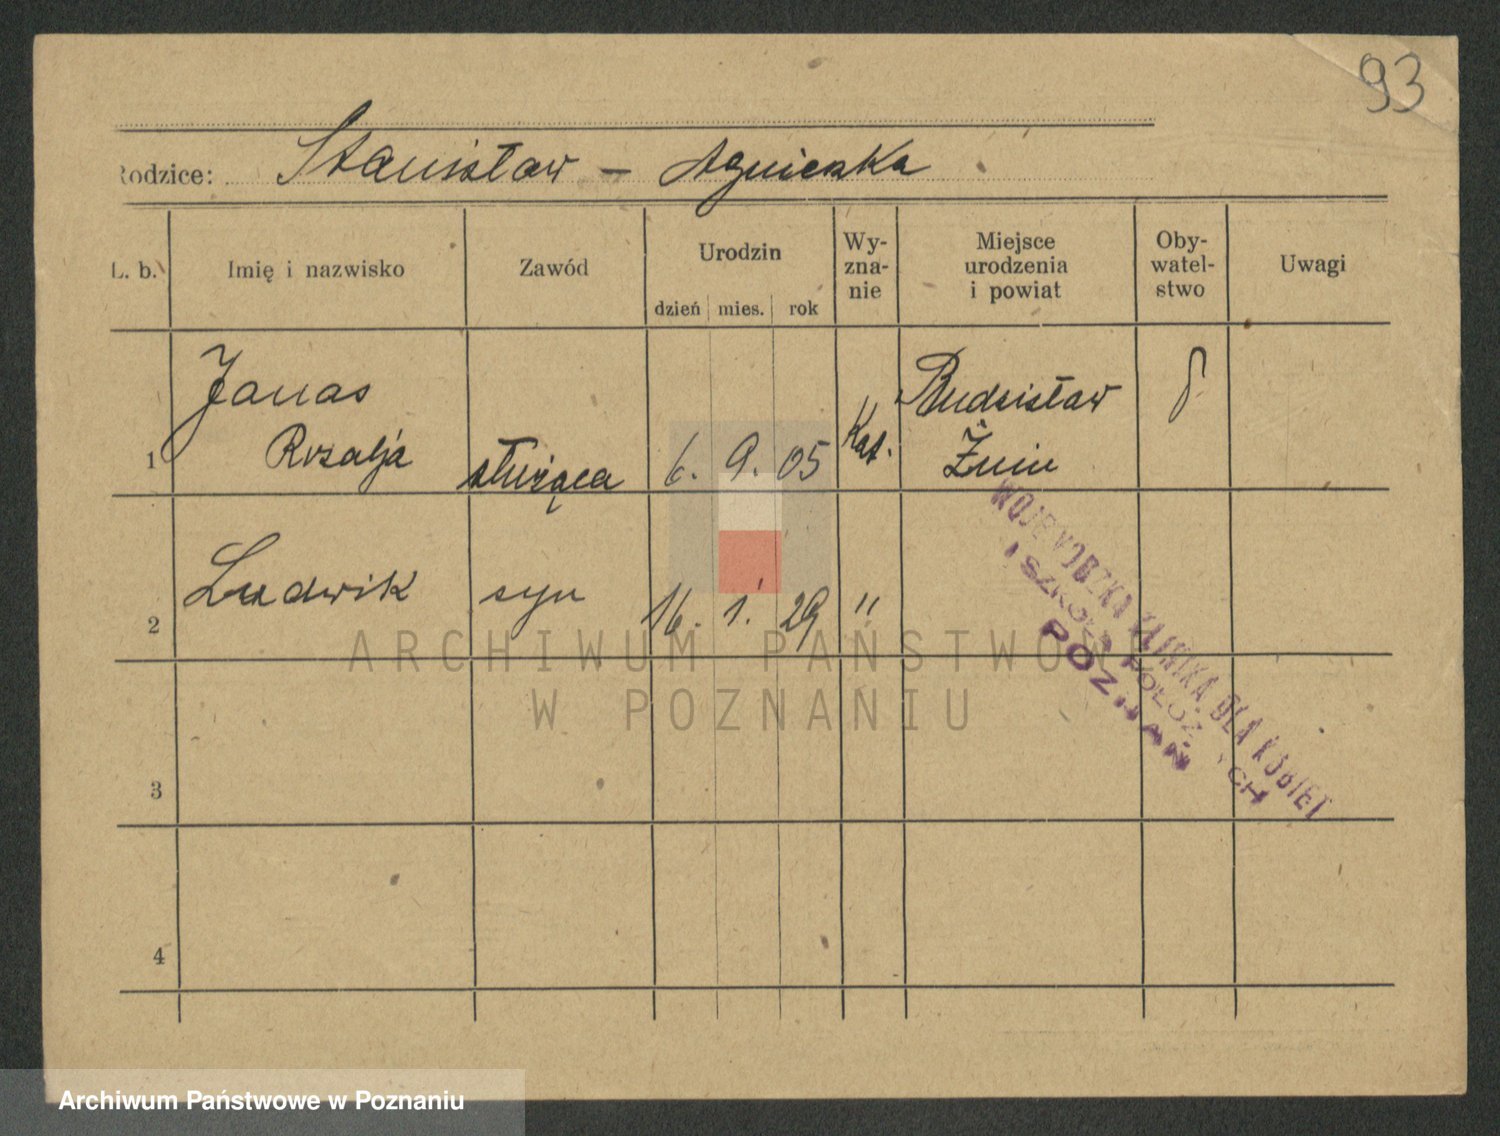 93
Rodzice: Stanisław – Agnieszka
L. b. Imię i nazwisko Zawód Urodzin Wy-zna-nie Miejsce urodzenia i powiat Oby-watel-stwo Uwagi
dzień mies. rok
Janas Budzisław
1 Rozalja służąca 6. 9. 05 Kat. Żnin
2 Ludwik syn 16. 1. 29 "
3
4
WOJEWÓDZKA KLINIKA DLA KOBIET
I SZKOŁA POŁOŻNYCH
POZNAŃ
ARCHIWUM PAŃSTWOWE
W POZNANIU
Archiwum Państwowe w Poznaniu